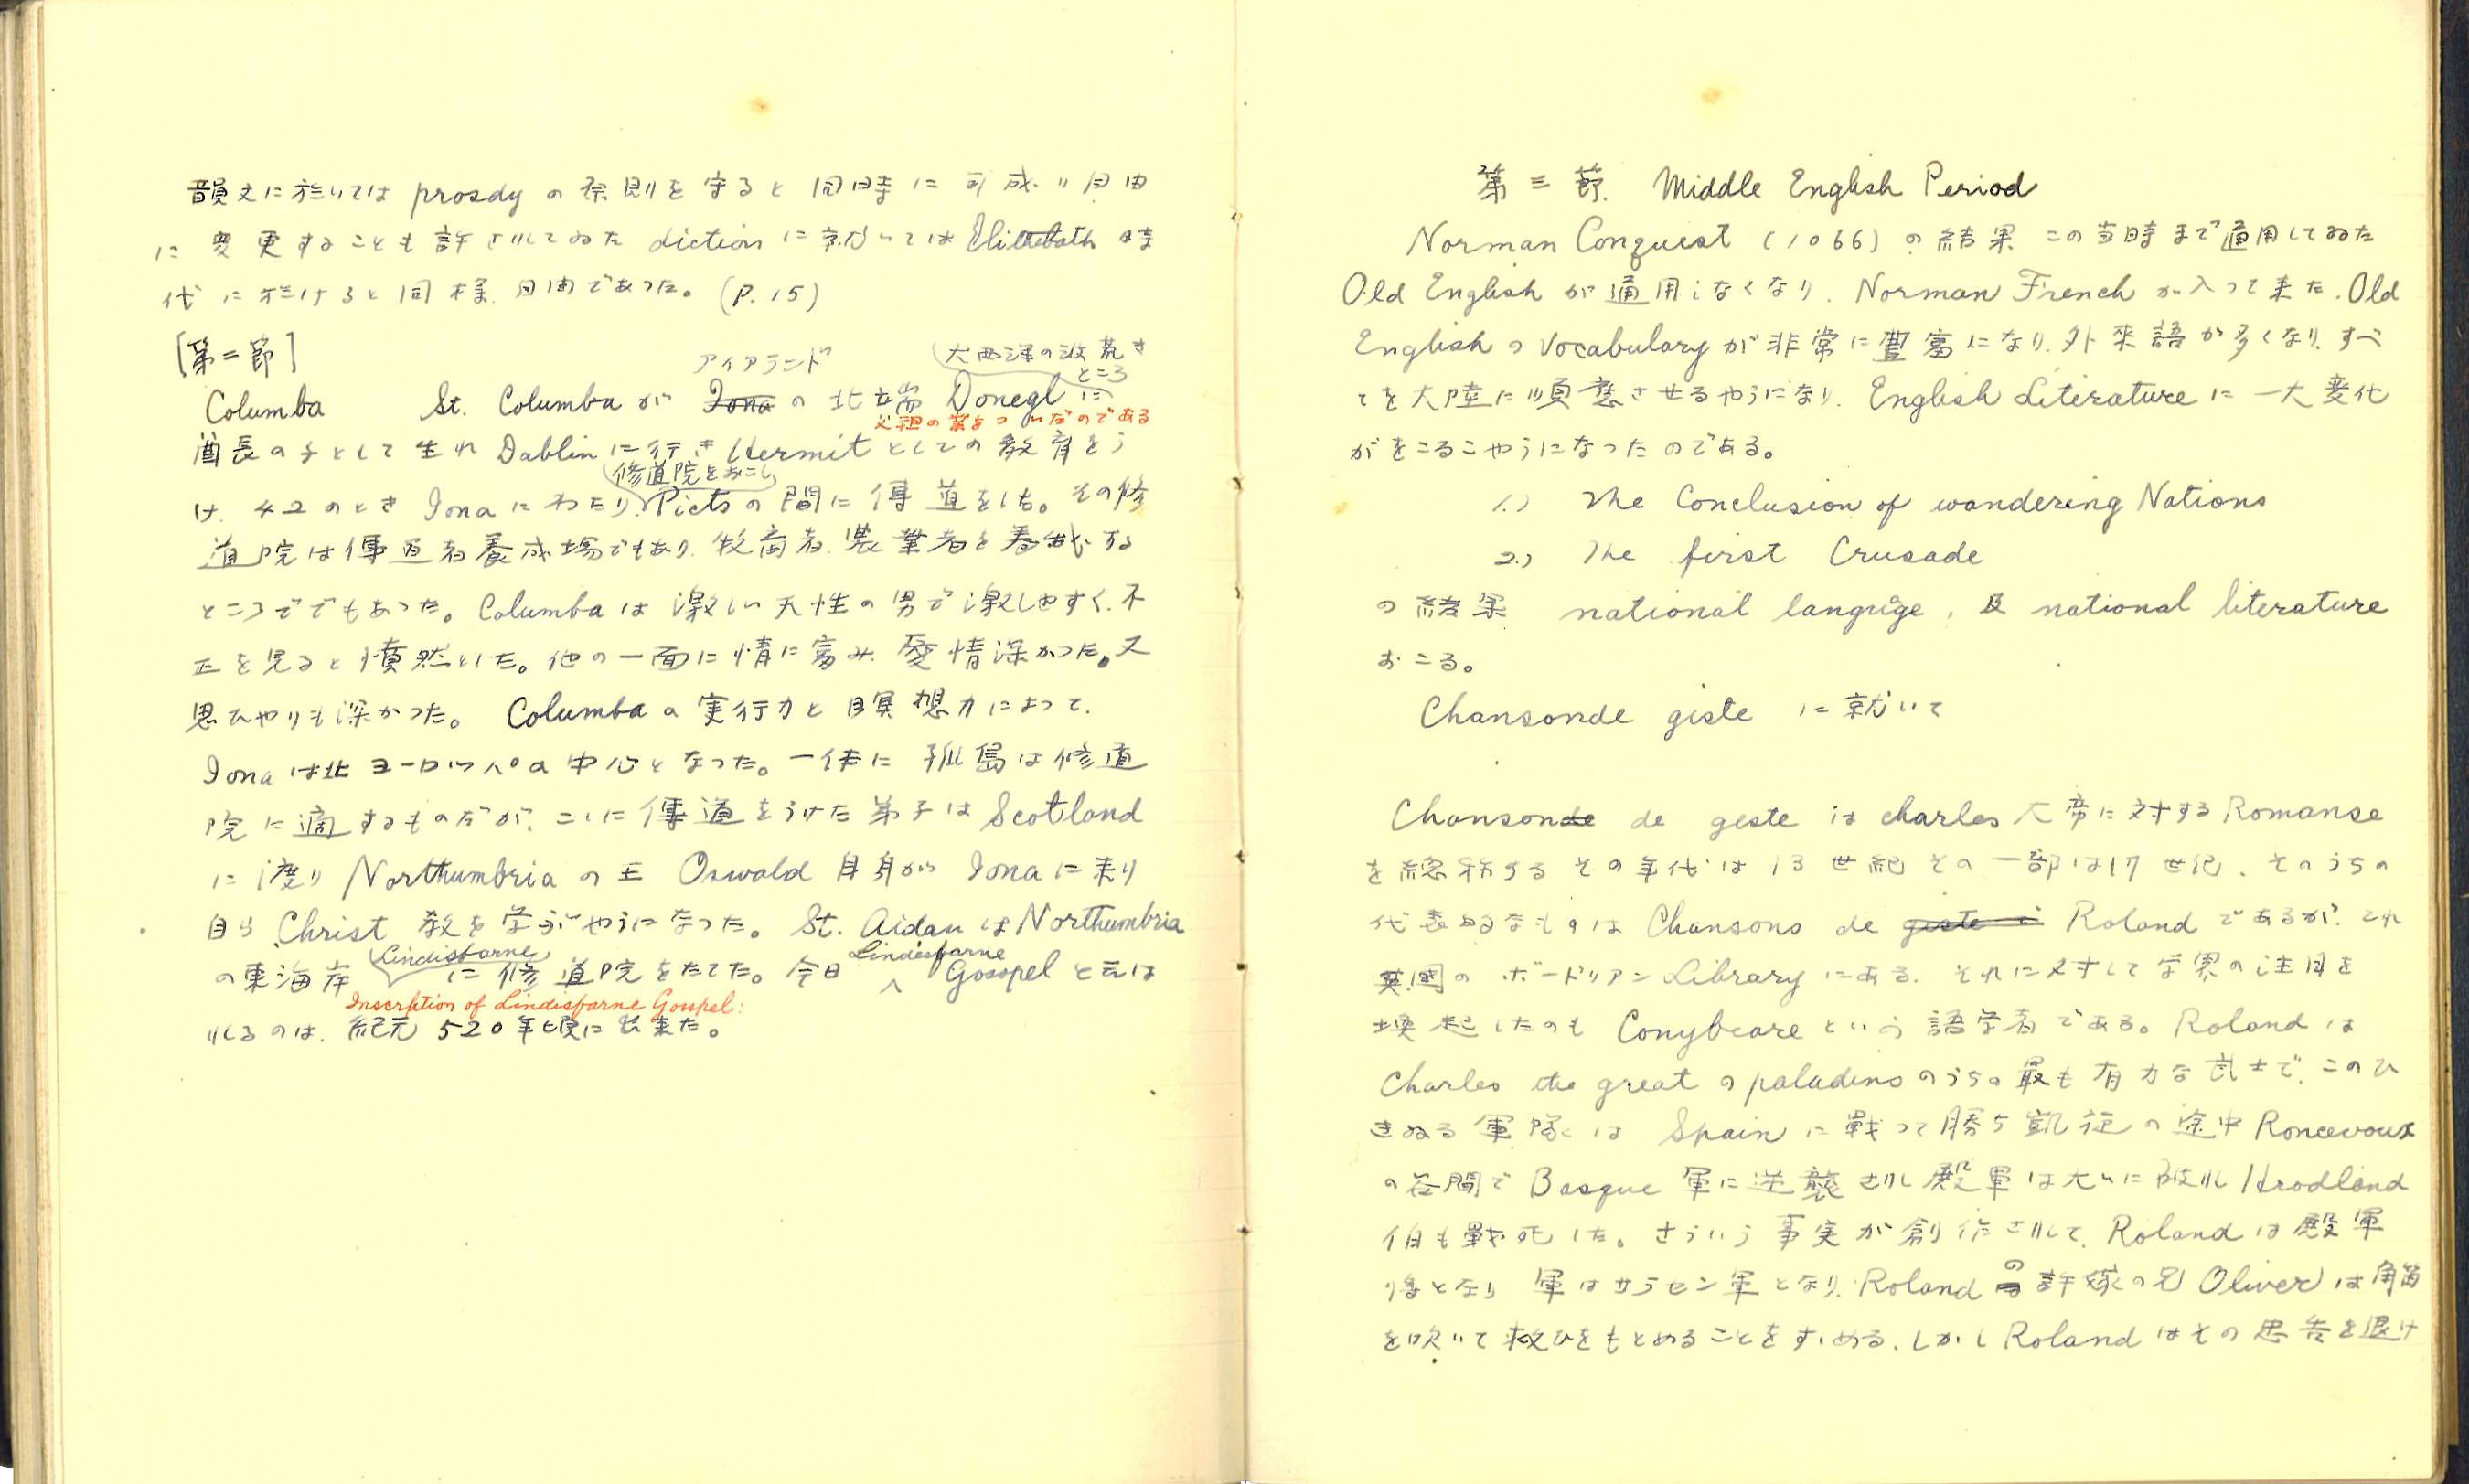 韻文に於いては prosdy の法則を守ると同時に可成り自由
に変更することも許されてゐた diction に就いては Elithebath 時
代に於けると同様自由であった。(P. 15)
[第二節]
アイアランド
大西洋の波荒き
ところ
Columba St. Columba が Iona の北端 Donegl に
父祖の業をついだのである
酋長の子として生れ Dablin に行き Hermit としての教育をう
修道院をおこし
け. 42のとき Iona にわたり Picts の間に傳道をした。その修
道院は傳道者養成場でもあり. 牧畜者. 農業者を養成する
ところででもあった。Columba は激しい天性の男で激しやすく. 不
正を見ると憤然とした。他の一面に情に富み. 愛情深かった。又
思ひやりも深かった。 Columba の実行力と瞑想力によって.
Iona は北ヨーロッパの中心となった。一体に孤島は修道
院に適するものだが. こゝに傳道をうけた弟子は Scotland
に渡り Northumbria の王 Oswald 自身が Iona に来り
自ら Christ 教を学ぶやうになった。 St. Aidan は Northumbria
Lindisfarne Lindisfarne
の東海岸 に修道院をたてた。今日 Gosspel と云は
Inscrption of Lindisfarne Gosspel:
れるのは. 紀元 520年頃に出来た。
第三節. Middle English Period
Norman Conquest (1066) の結果 この当時まで通用してゐた
Old English が通用しなくなり. Norman French が入って来た. Old
English の vocabulary が非常に豊富になり. 外来語が多くなり. すべ
てを大陸に順應させるやうになり. English Literature に一大変化
がをこるこやうになったのである。
1.) The Conclusion of wandering Nations
2.) The first Crusade
の結果 national langrige, 及 national literature
おこる。
Chansonde giste に就いて
Chansonde de geste は charles 大帝に対する Romanse
を総称する その年代は 13世紀 その一部は17世紀. そのうちの
代表的なものは Chansons de giste Roland であるが. これ
英国のボードリアン Library にある. それに対して学界の注目を
喚起したのも Conybeare という語学者である。Roland は
Charles the great の paladins のうちの最も有力な武士で. このひ
きゐる軍隊は Spain に戦って勝ち凱旋の途中 Roncevoux
の谷間で Basque 軍に逆襲され殿軍は大いに破れ Hrodland
伯も戦死した。さういう事実が創作されて. Roland は殿軍
の
将となり 軍はサラセン軍となり. Roland 許嫁の兄 Oliver は角笛
を吹いて救ひをもとめることをすゝめる. しかし Roland はその忠告を退け